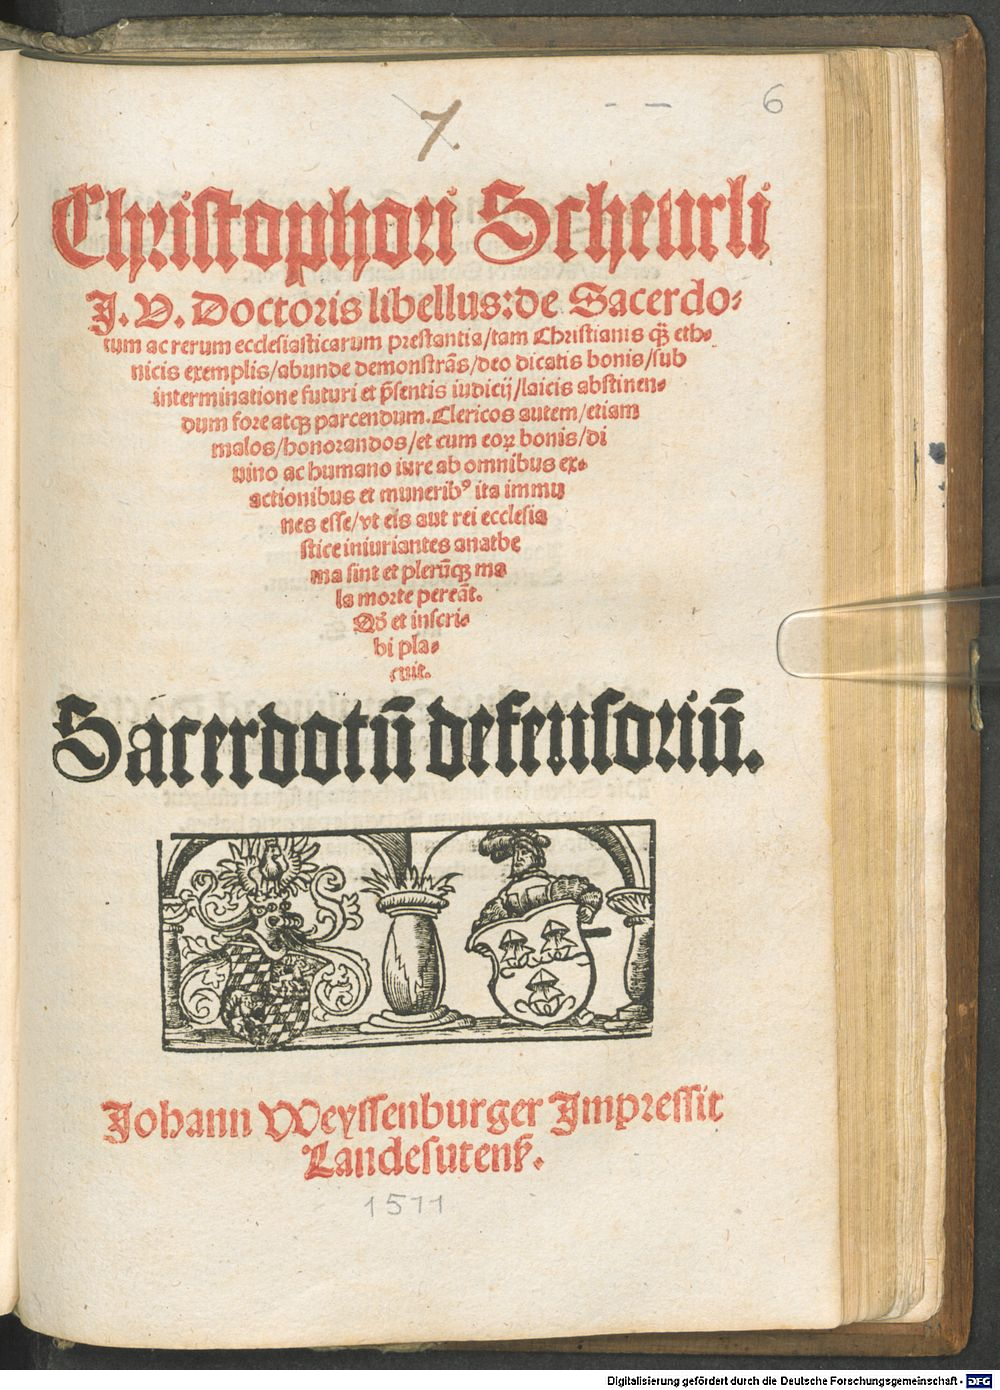 7.
6
Christophori Scheurli
J. V. Doctoris libellus: de Sacerdo⸗
tum ac rerum ecclesiasticarum prestantia/tam Christianis q̃ eth⸗
nicis exemplis/abunde demonstrãs/deo dicatis bonis/sub
interminatione futuri et p̃sentis iudicij/laicis abstinen⸗
dum fore atqꝫ parcendum. Clericos autem/etiam
malos/honorandos/et cum eoꝝ bonis/di
uino ac humano iure ab omnibus ex⸗
actionibus et munerib⁹ ita immu
nes esse/vt eis aut rei ecclesia
stice iniuriantes anathe
ma sint et plerũqꝫ ma
la morte pereãt.
Qđ et inscri⸗
bi pla⸗
cuit.
Sacerdotũ defensoriũ.
Johann Weyssenburger Impressit
Landesutenß.
1511
Digitalisierung gefördert durch die Deutsche Forschungsgemeinschaft - DFG